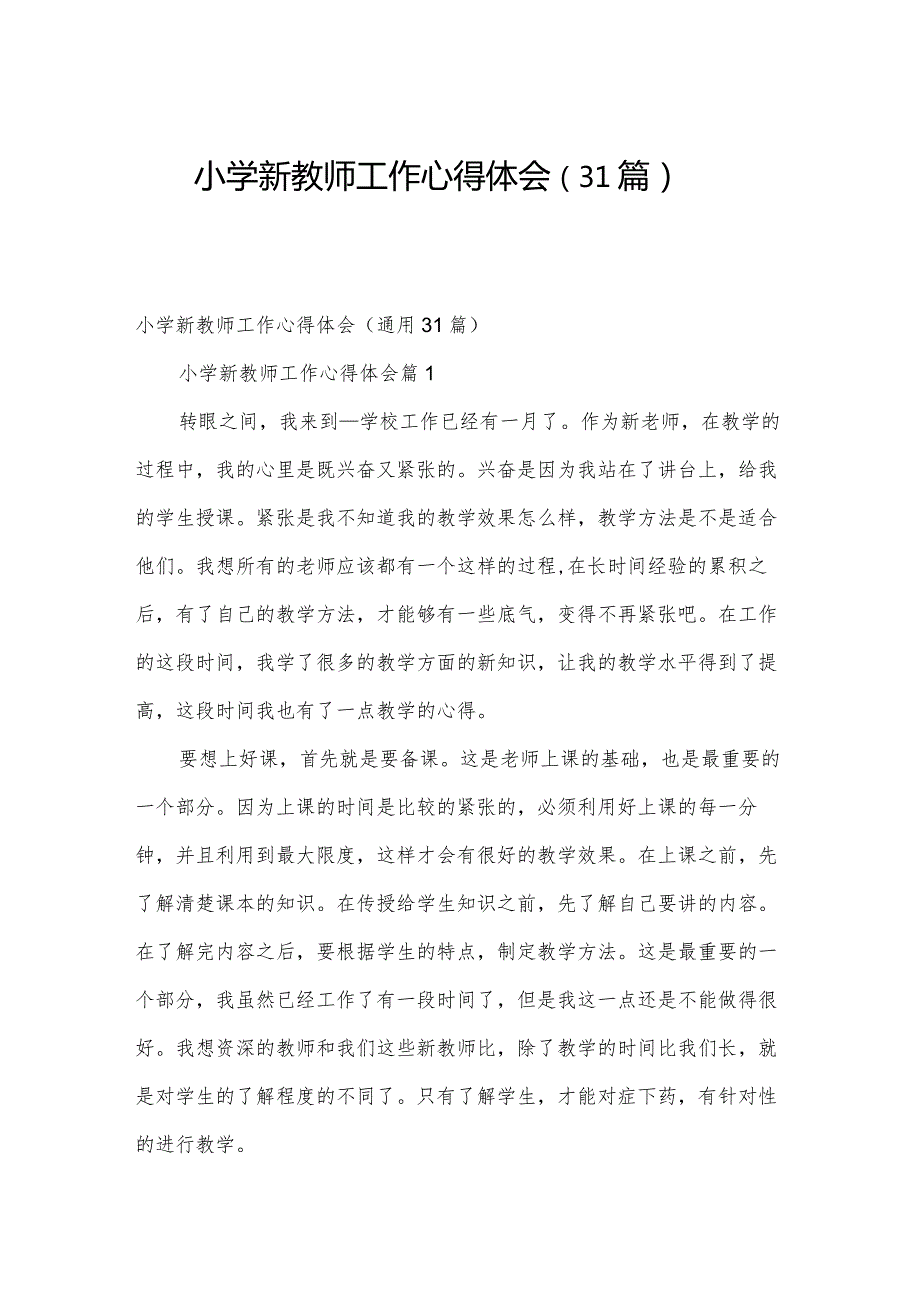 小学新教师工作心得体会（31篇）
小学新教师工作心得体会（通用31篇）
小学新教师工作心得体会篇1
转眼之间，我来到—学校工作已经有一月了。作为新老师，在教学的
过程中，我的心里是既兴奋又紧张的。兴奋是因为我站在了讲台上，给我
的学生授课。紧张是我不知道我的教学效果怎么样，教学方法是不是适合
他们。我想所有的老师应该都有一个这样的过程,在长时间经验的累积之
后，有了自己的教学方法，才能够有一些底气，变得不再紧张吧。在工作
的这段时间，我学了很多的教学方面的新知识，让我的教学水平得到了提
高，这段时间我也有了一点教学的心得。
要想上好课，首先就是要备课。这是老师上课的基础，也是最重要的
一个部分。因为上课的时间是比较的紧张的，必须利用好上课的每一分
钟，并且利用到最大限度，这样才会有很好的教学效果。在上课之前，先
了解清楚课本的知识。在传授给学生知识之前，先了解自己要讲的内容。
在了解完内容之后，要根据学生的特点，制定教学方法。这是最重要的一
个部分，我虽然已经工作了有一段时间了，但是我这一点还是不能做得很
好。我想资深的教师和我们这些新教师比，除了教学的时间比我们长，就
是对学生的了解程度的不同了。只有了解学生，才能对症下药，有针对性
的进行教学。